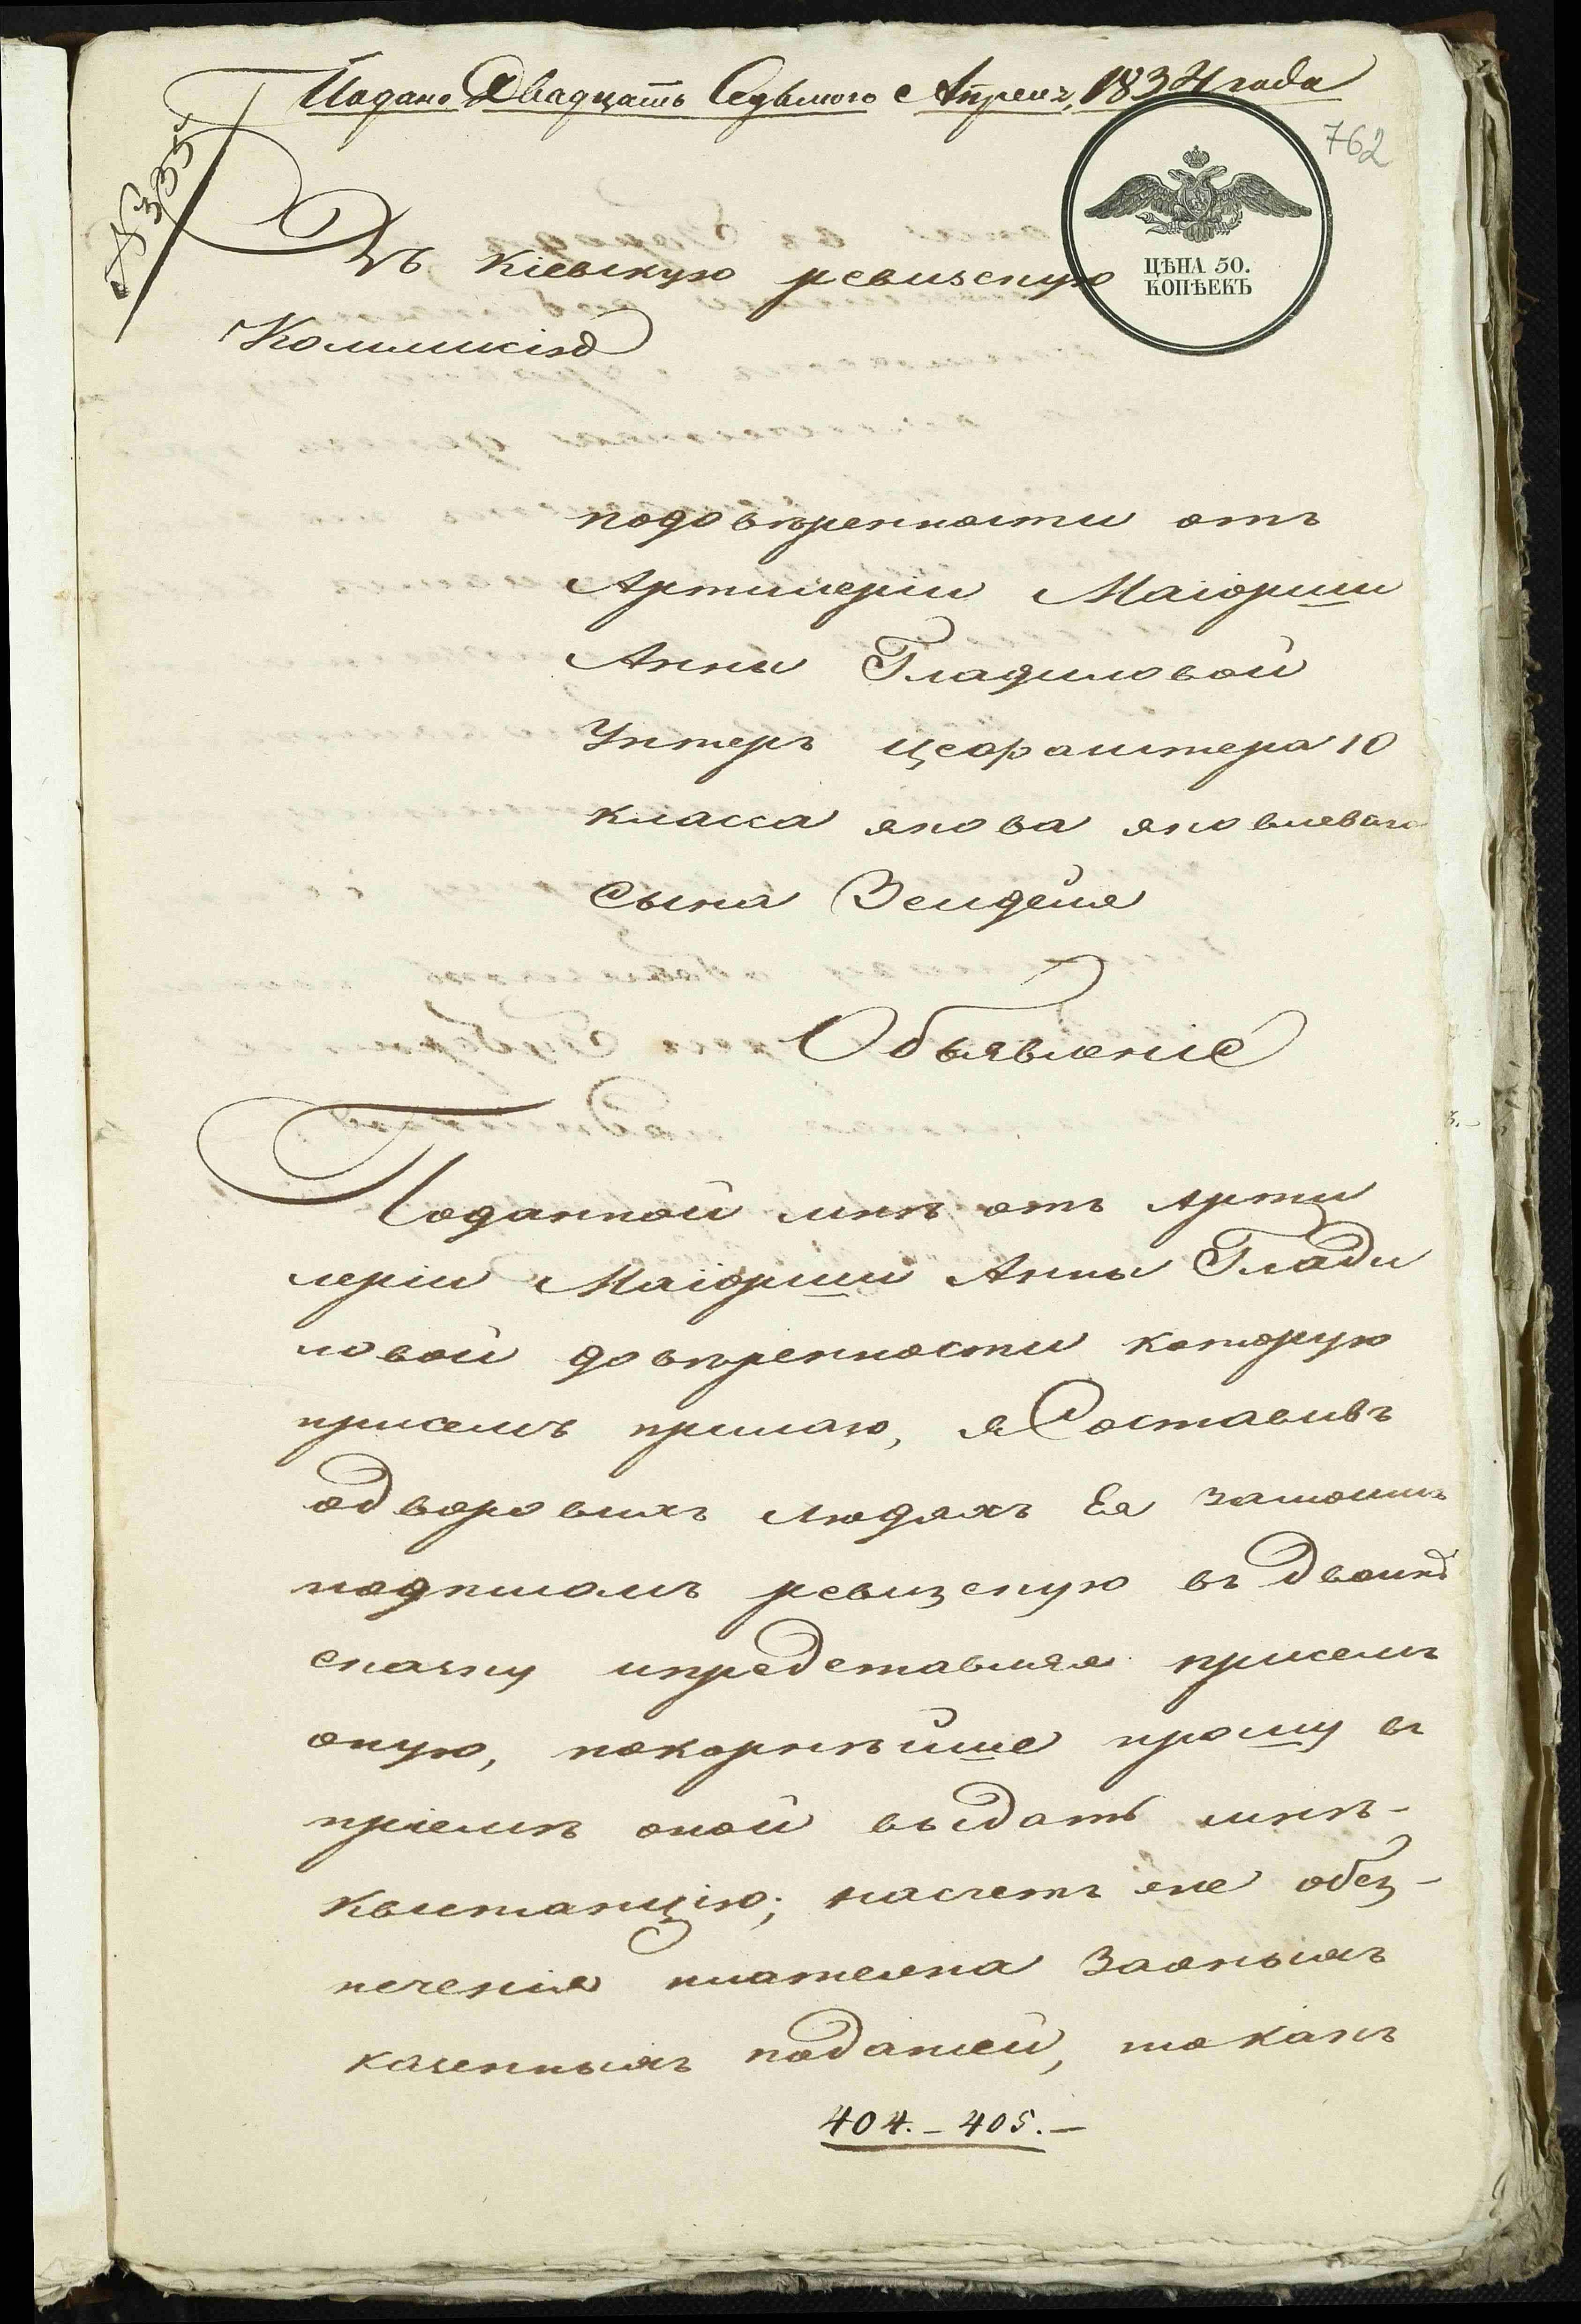 Подано Двадцать Седьмого Апреля 1834 года
№ 335
762
Въ Кіевскую ревизскую
ЦѢНА 50.
КОПѢЕКЪ
Коммисію
подовѣренности отъ
Артилеріи Маіорши
Анны Гладиловой
Унтеръ Цейхвахтера 10
класса якова яковлеваго
сына Зейделя
Объявленіе
Поданной мнѣ отъ Арти
леріи Маіорши Анны Глади
ловой довѣренности которую
присемъ прилаю, я Составивъ
одворовыхъ людяхъ Ея замоимъ
подписомъ ревизскую въ двойнѣ
сказку ипредставляя присемъ
оную, покорнѣйше прошу въ
пріемѣ оной выдать мнѣ-
квитанцію; насчетъ же обез-
печенія платежа Заоныхъ
казенныхъ податей, то какъ
404. - 405. -